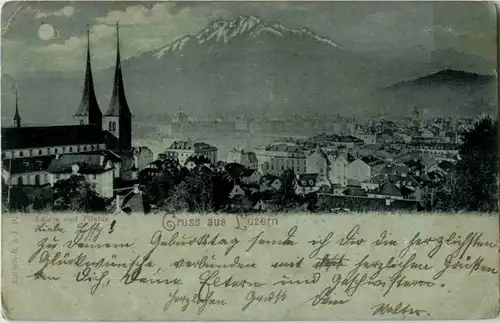 Luzern und Pilatus
Gruss aus Luzern
Liebe
Zu Deinem Geburtstag sende ich Dir die herzlichsten
Glückwünsche verbunden mit herzlichen Grüßen
an Dich, Deine Eltern und Geschwistern.
Herzlichen Gruß Dein
Walter.